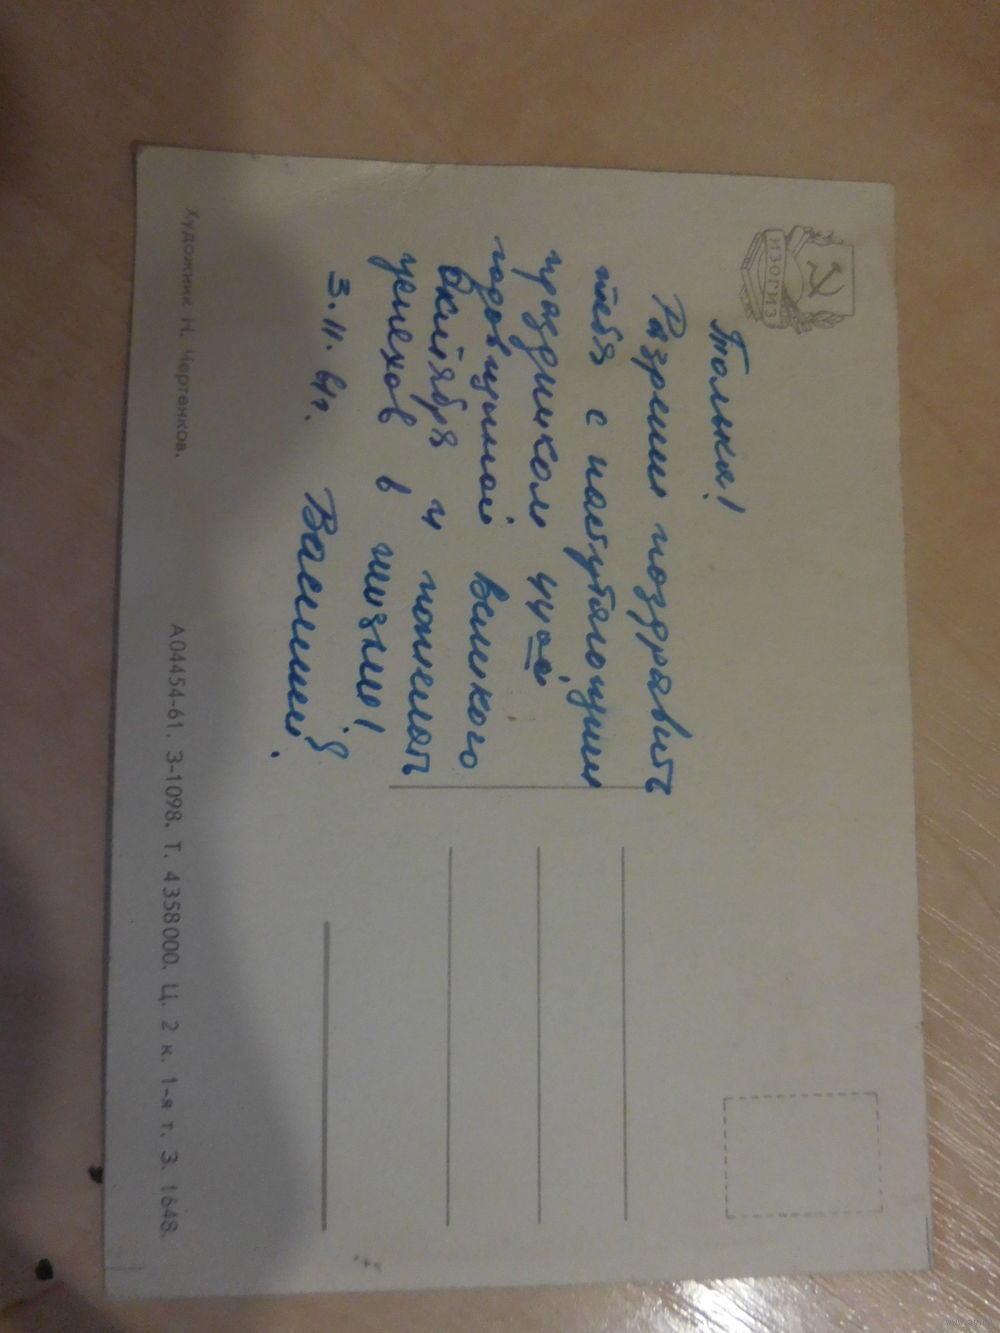 ИЗОГИЗ
Толька!
Разреши поздравить
тебя с наступающим
праздником 44ой
годовщиной Великого
Октября и пожелать
успехов в жизни!
3.11.61г. Василий.
Художник Н. Чертенков.
А04454-61. З-1098. Т. 4358000. Ц. 2 к. 1-я т. З. 1648.